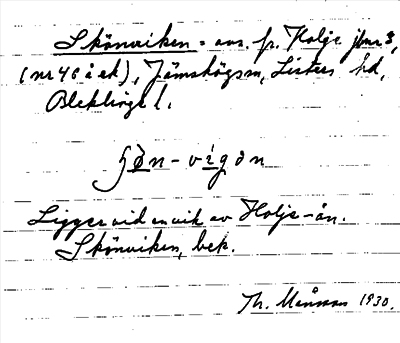 Skönviken = avs. fr. Holje jbnr 3,
(nr 46 å ek), Jämshögs sn, Listers hd,
Blekinge l.
ʃən - vigən
Ligger vid en vik av Holje-ån.
Skönviken, bek.
Th. Månsson 1930.